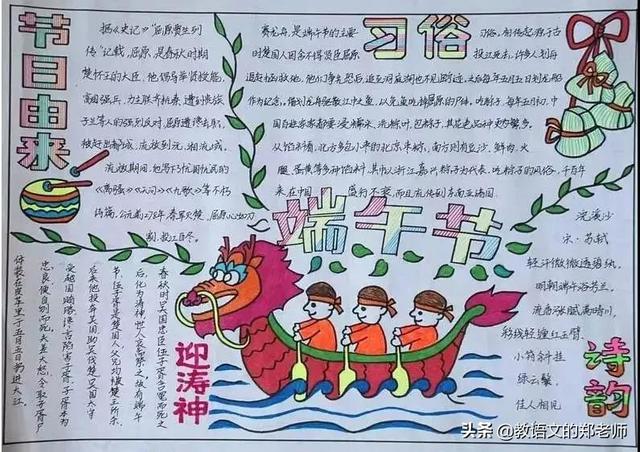 节日由来
据《史记》"屈原贾生列
传"记载，屈原，是春秋时期
楚怀王的大臣。他倡导举贤授能，
富国强兵，力主联齐抗秦，遭到贵族
子兰等人的强烈反对，屈原遭谗去职，
被赶出都城，流放到沅、湘流域。
流放期间，他写下了忧国忧民的
《离骚》《天问》《九歌》等不朽
诗篇，公元前278年，秦军
投江自尽。
习俗
赛龙舟，是端午节的主要习俗，相传起源于古
时楚国人因舍不得贤臣屈原投江死去，许多人划舟
追赶拯救他，他们争先恐后，追至洞庭湖
之后每年五月五日划龙舟
作为纪念。借划龙舟驱散江中之鱼，以免鱼吃掉屈原的尸体。吃粽子，每年五月初，中
国百姓家家都要浸糯米、洗粽叶、包粽子，其花色品种更为繁多。
从馅料看，北方多包小枣的北京枣粽；南方则有豆沙、鲜肉、火
腿、蛋黄等多种馅料，其中以浙江嘉兴粽子为代表。吃粽子的风俗，千百年
来在中国盛行不衰，而且流传到东南亚诸国。
端午节
迎涛神
春秋时吴国忠臣伍子胥含冤而死之
后，化为涛神，世人哀而祭之，故有端午
节。伍子胥是楚国人，父兄均被楚王所杀，
后来他投奔吴国，助吴伐楚
忠良便自刎而死，夫差大怒，令取子胥尸
体装在皮革里于五月五日投进大江
浣溪沙
宋：苏轼
轻汗微微透碧纨，
明朝端午浴芳兰。
流香涨腻满晴川。
彩线轻缠红玉臂，
小符斜挂
绿云鬟。
佳人相见
诗韵
头条 @教语文的郑老师